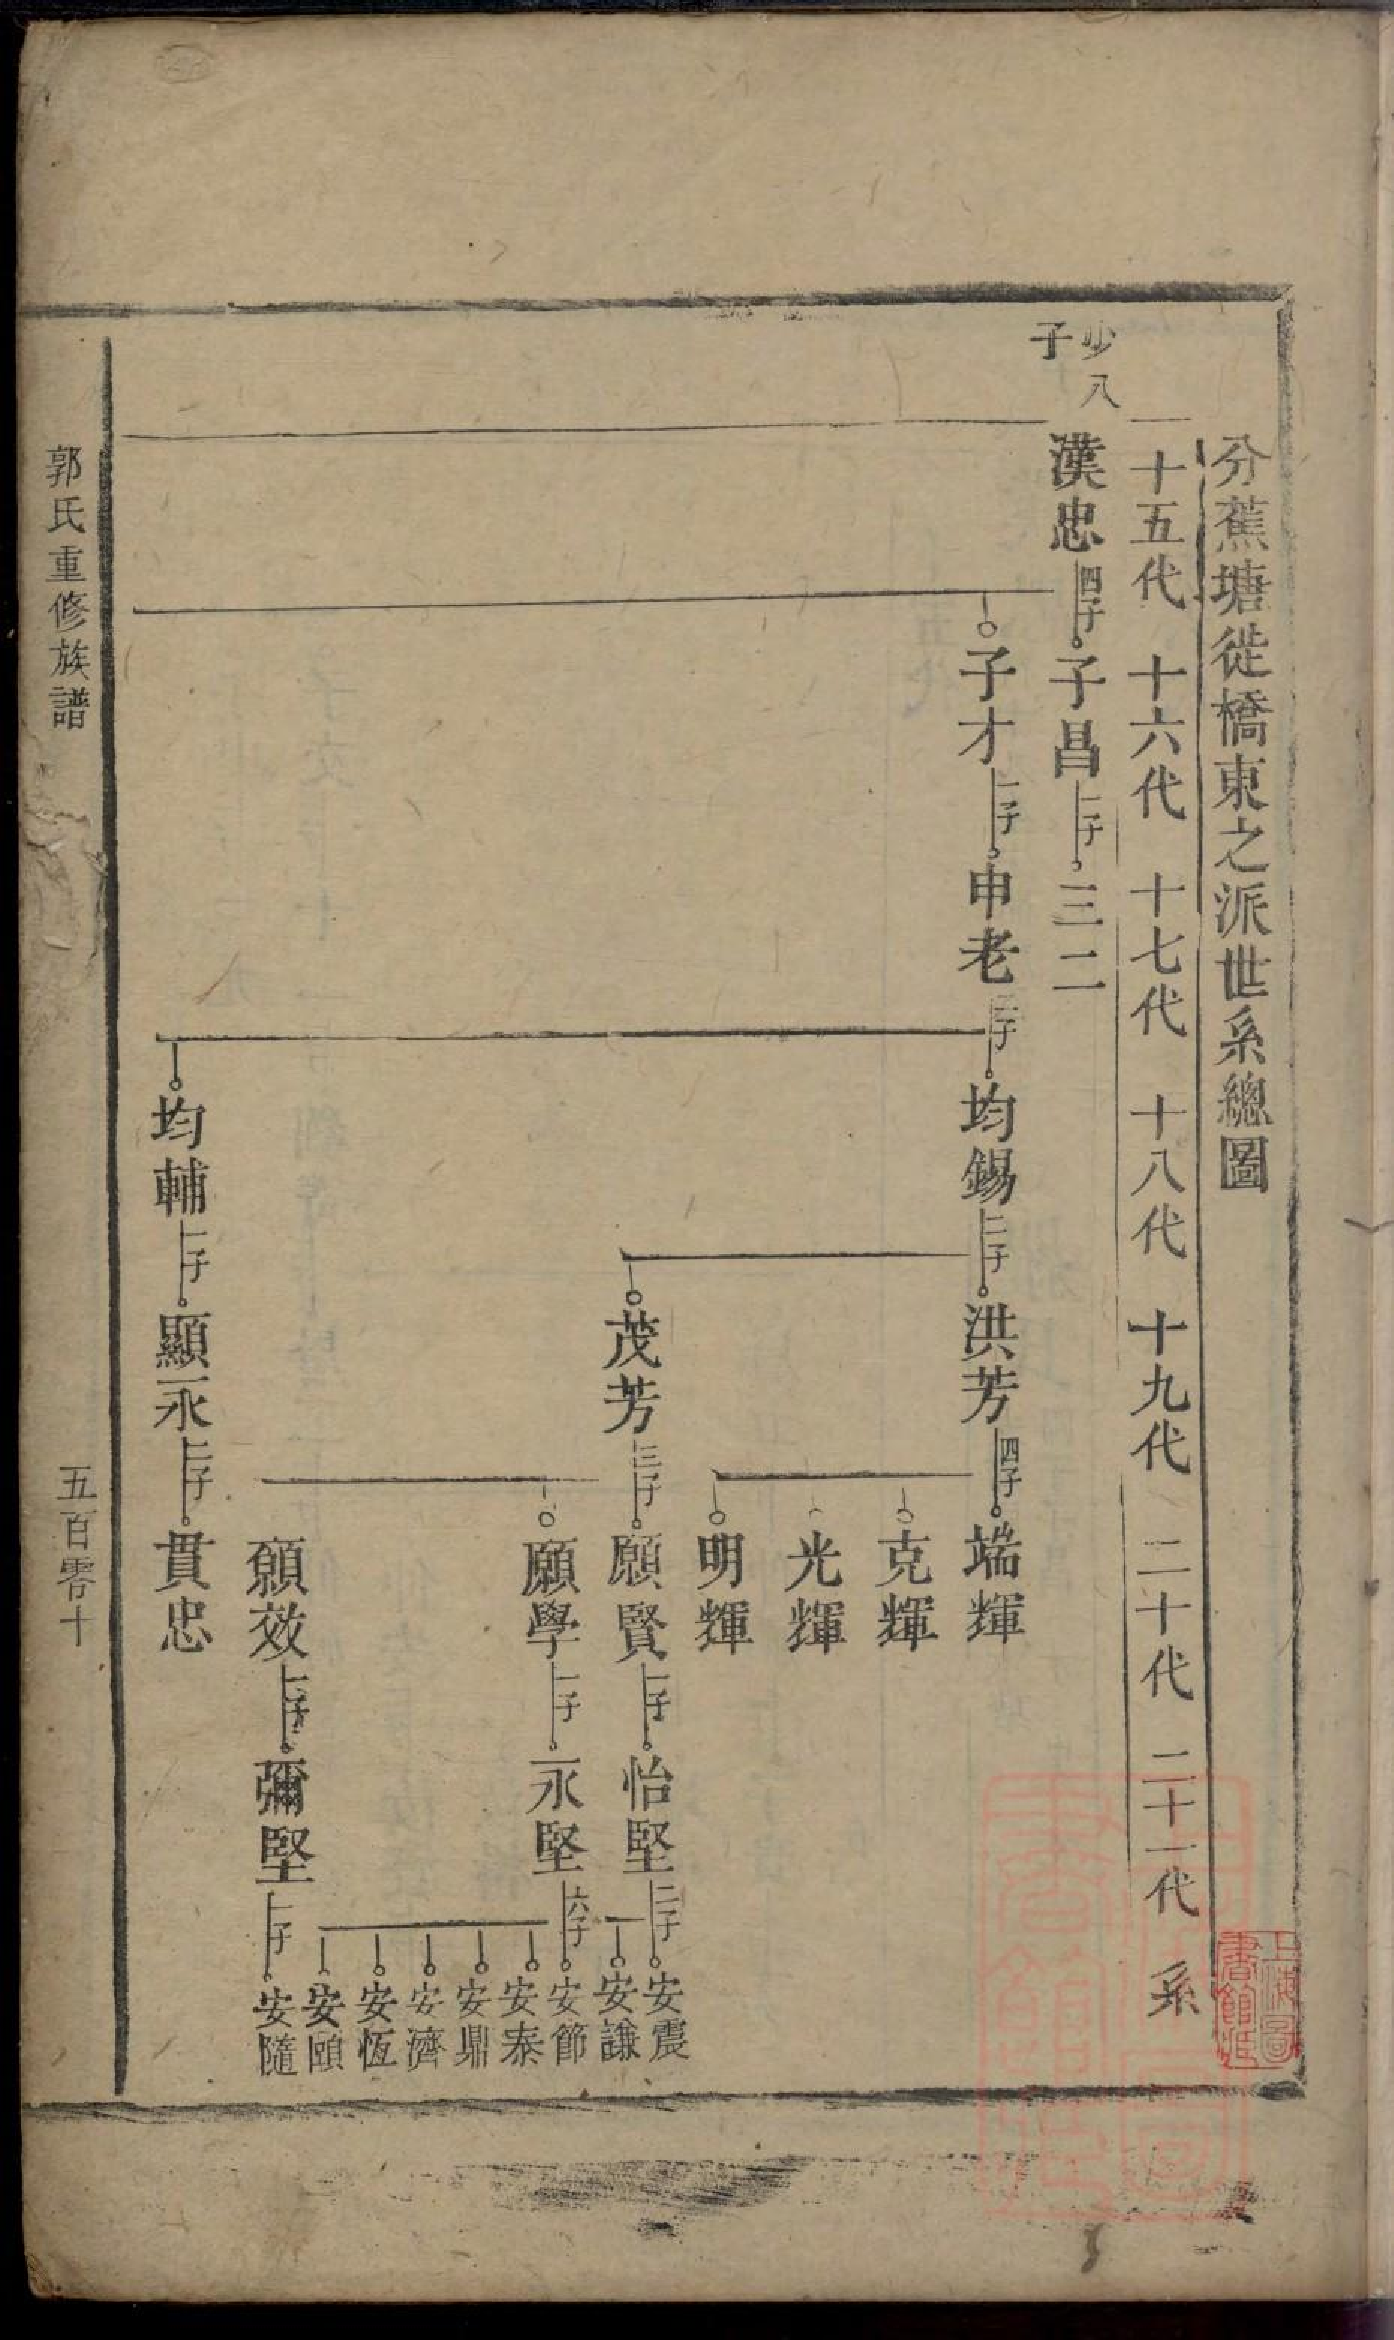 分蕉塘徙橋東之派世系總圖
十五代 十六代 十七代 十八代 十九代 二十代 二十一代 系
少八
子
漢忠 四子 子昌 一子 三二
子才 一子 申老 二子 均錫 二子 洪芳 四子 端輝
克輝
光輝
明輝
茂芳 三子 願賢 一子 怡堅 二子 安震
安謙
願學 一子 永堅 六子 安節
安泰
安鼎
安濟
安恆
安頤
願效 一子 彌堅 一子 安隨
均輔 一子 顯永 一子 貫忠
郭氏重修族譜
五百零十
上海圖書館藏